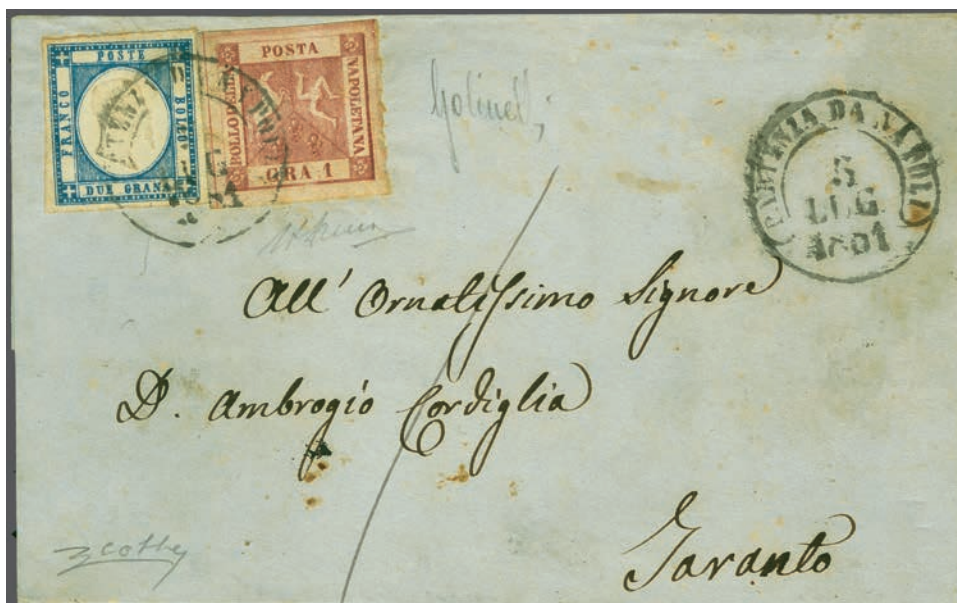 POSTE
FRANCO
BOLLO
DUE GRANA
POSTA
NAPOLETANA
BOLLO DELLA
GRA 1
PARTENZA DA NAPOLI
5
LUG
1861
All' Ornatissimo Signore
D. Ambrogio Cordiglia
Taranto